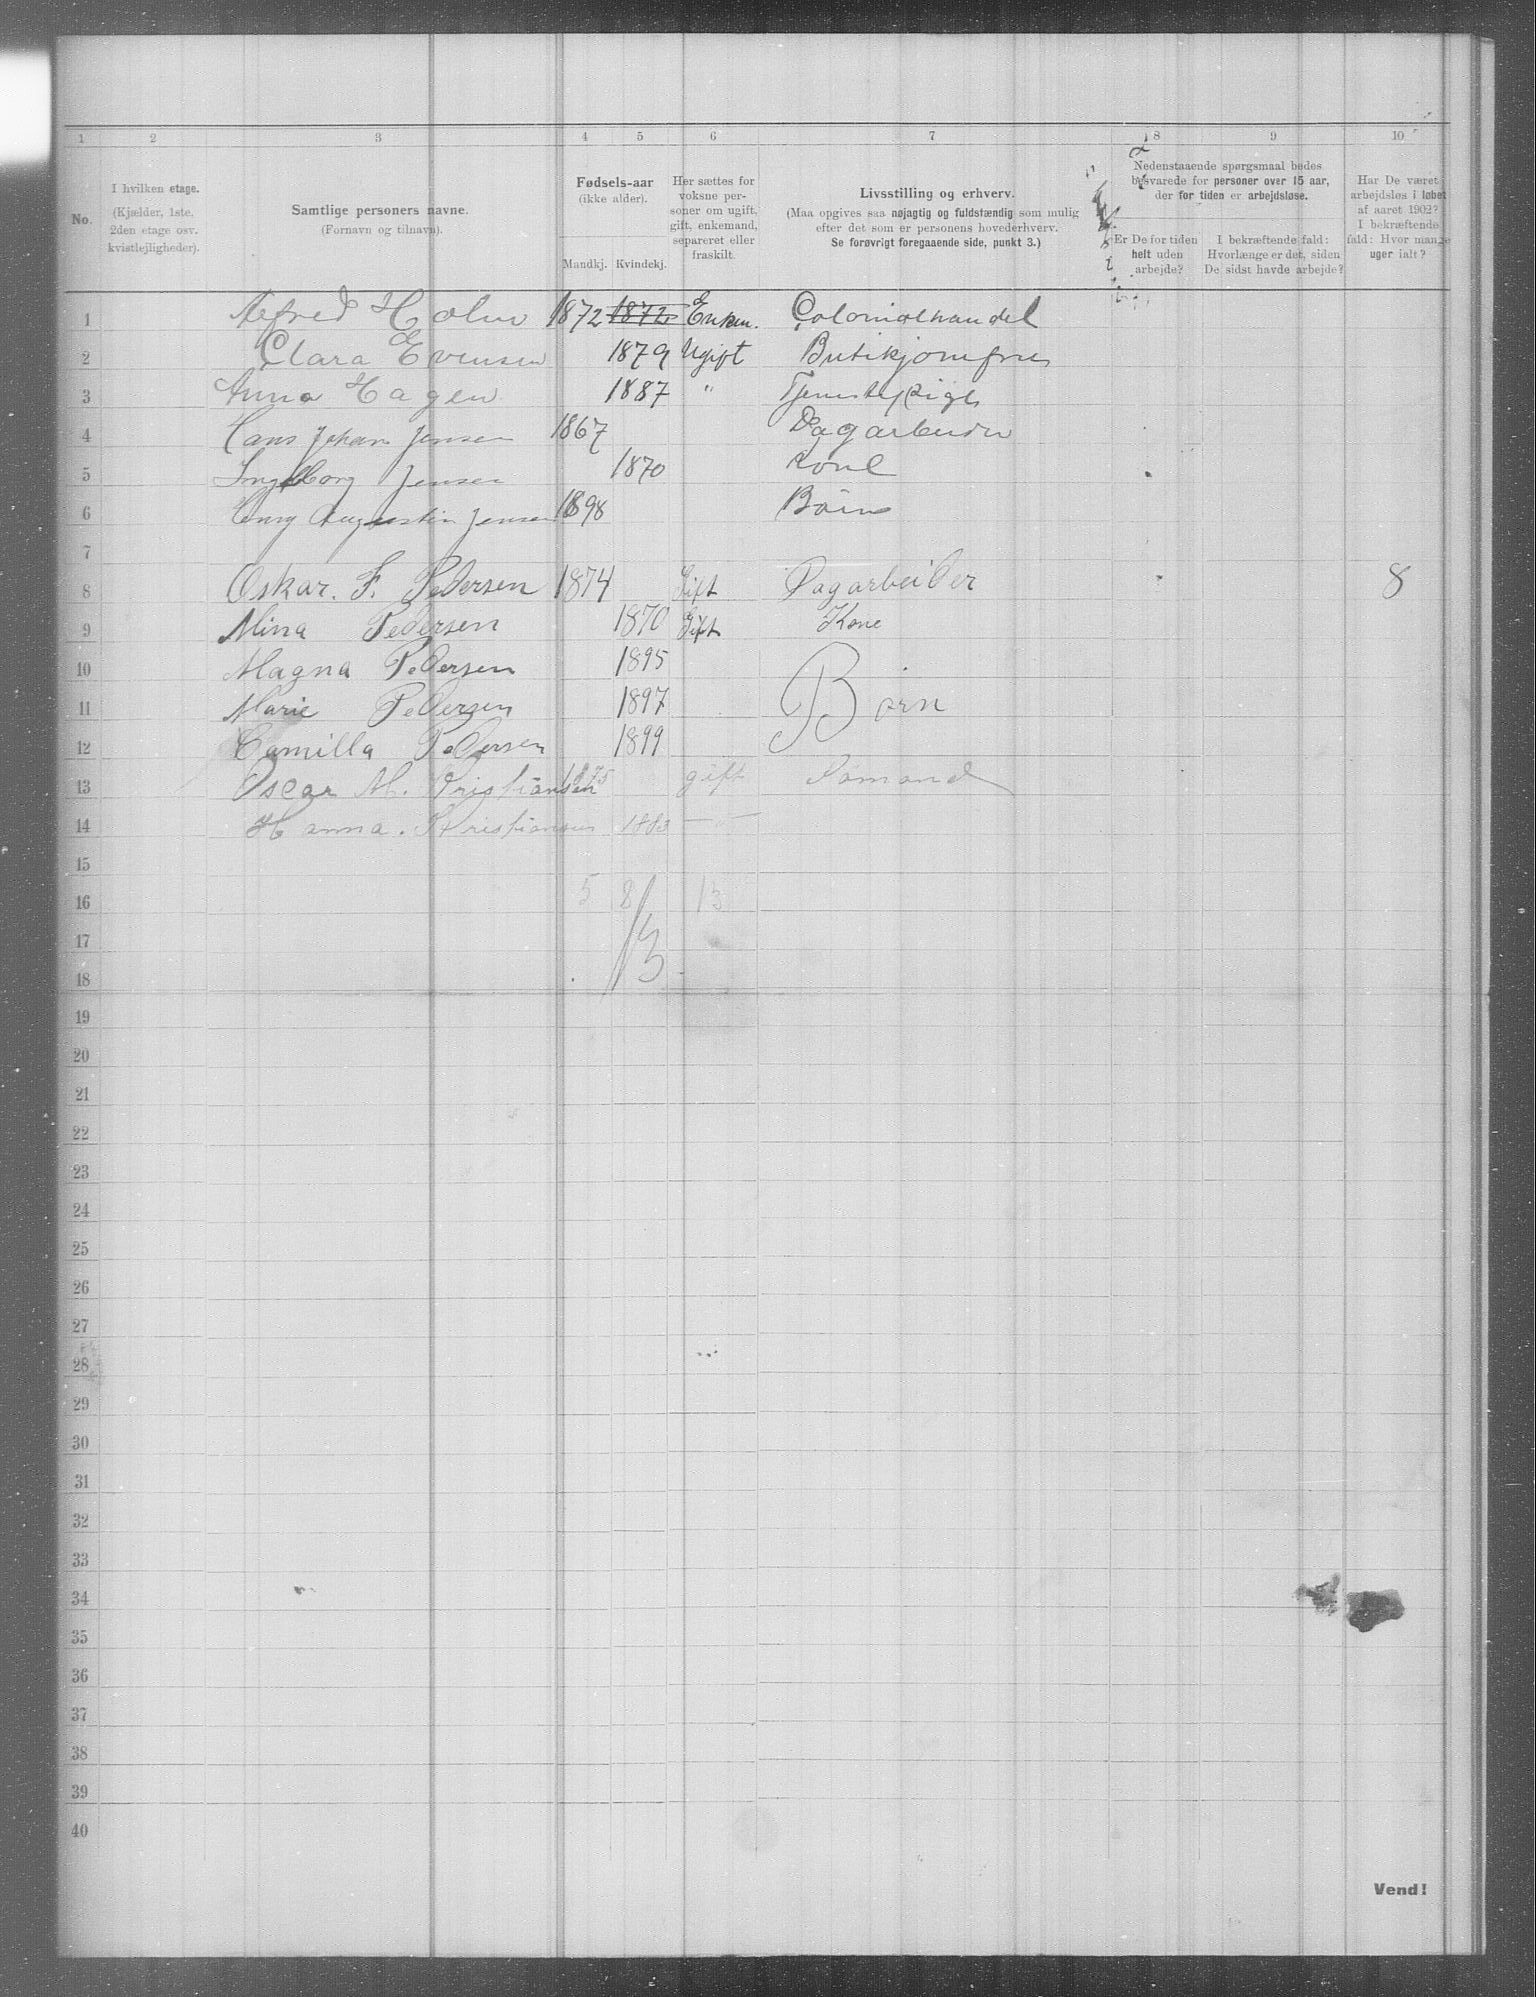 1 2 3 4 5 6 7 8 9 10
No.
I hvilken etage.
(Kjælder, 1ste,
2den etage osv.
kvistlejligheder).
Samtlige personers navne.
(Fornavn og tilnavn).
Fødsels-aar
(ikke alder).
Mandkj. Kvindekj.
Her sættes for
voksne per-
soner om ugift,
gift, enkemand,
separeret eller
fraskilt.
Livsstilling og erhverv.
(Maa opgives saa nøjagtig og fuldstændig som mulig
efter det som er personens hovederhverv.
Se forøvrigt foregaaende side, punkt 3.)
Nedenstaaende spørgsmaal bedes
besvarede for personer over 15 aar,
der for tiden er arbejdsløse.
Er De for tiden
helt uden
arbejde?
I bekræftende fald:
Hvorlænge er det, siden
De sidst havde arbejde?
Har De været
arbejdsløs i løbet
af aaret 1902?
I bekræftende
fald: Hvor mange
uger ialt?
1 Alfred Holm 1872 1872 Enkem. Colonialhandel
2 Clara Evensen 1879 Ugift Butikjomfru
3 Anna Hagen 1887 " Tjenestepige
4 Hans Johan Jensen 1867 Dagarbeider
5 Ingeborg Jensen 1870 Kone
6 Augustin Jensen 1898 Børn
7
8 Oskar. F. Pedersen 1874 Gift Dagarbeider 8
9 Mina Pedersen 1870 Gift Kone
10 Magna Pedersen 1895
11 Marie Pedersen 1897 Børn
12 Camilla Pedersen 1899
13 Oscar M. Kristiansen 1875 gift Sømand
14 Hanna. Kristiansen 1883 — " —
15
16 5 8 13
17 13
18
19
20
21
22
23
24
25
26
27
28
29
30
31
32
33
34
35
36
37
38
39
40
Vend!